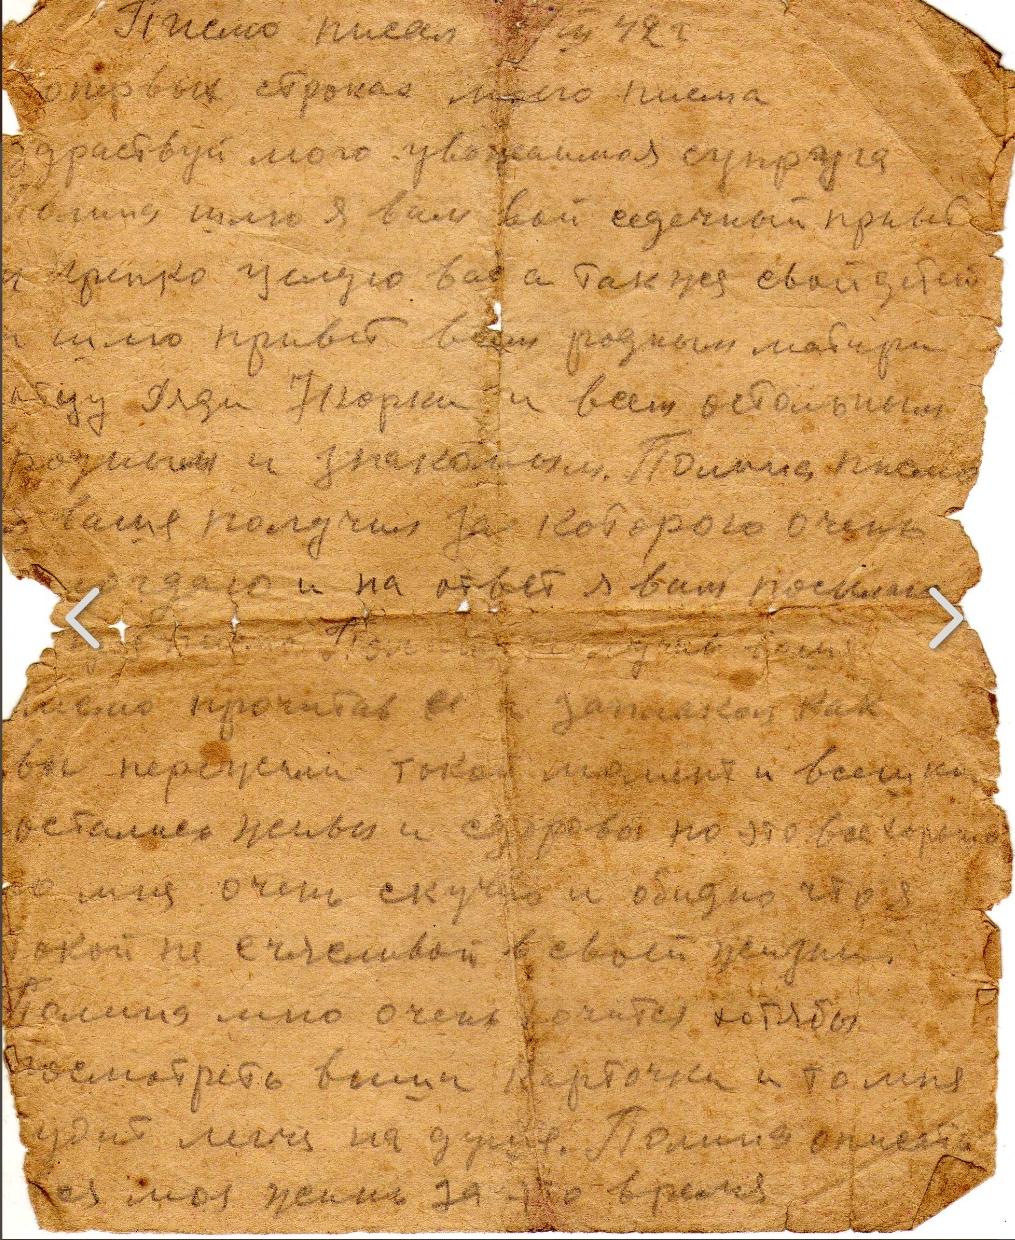 Писмо писал III 42 г
первых строках моего писма
здраствуй мого уважаимая супруга
Полина шлю я вам свой седечный привет
и крепко целую вас а также свой детей
и шлю привет всем родным матири
отцу дяди Жорки и всем остольным
родным и знакомым. Полина писмо
я ваше получил за которого очень
и на ответ я вам посилаю
Полина получив ваше
писмо прочитав ее и заплакол как
вы пережили токой момент и всешки
остались живы и сдоровы но это все хорошо
но мня очень скучно и обидно что я
токой не счасливой в своей жизни.
Полина мно очень хочится хотябы
посмотреть ваши карточки и то мня
будит легчя на душе. Полина описат
вся моя жизнь за это время